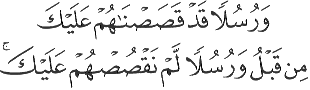 وَرُسُلًا قَدْ قَصَصْنَٰهُمْ عَلَيْكَ
مِن قَبْلُ وَرُسُلًا لَّمْ نَقْصُصْهُمْ عَلَيْكَ ۚ